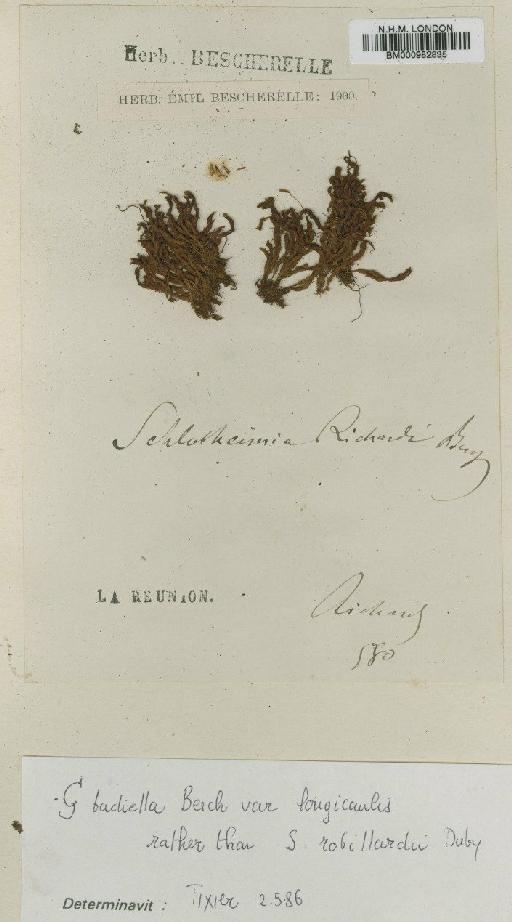 N.H.M. LONDON
Herb. BESCHERELLE
HERB. ÉMIL BESCHERELLE: 1900.
Schlotheimia Richardi
LA REUNION.
Richard
580
badiella Besch var longicaulis
rather than S. robillardii Duby
Determinavit : Tixier 2.5.86